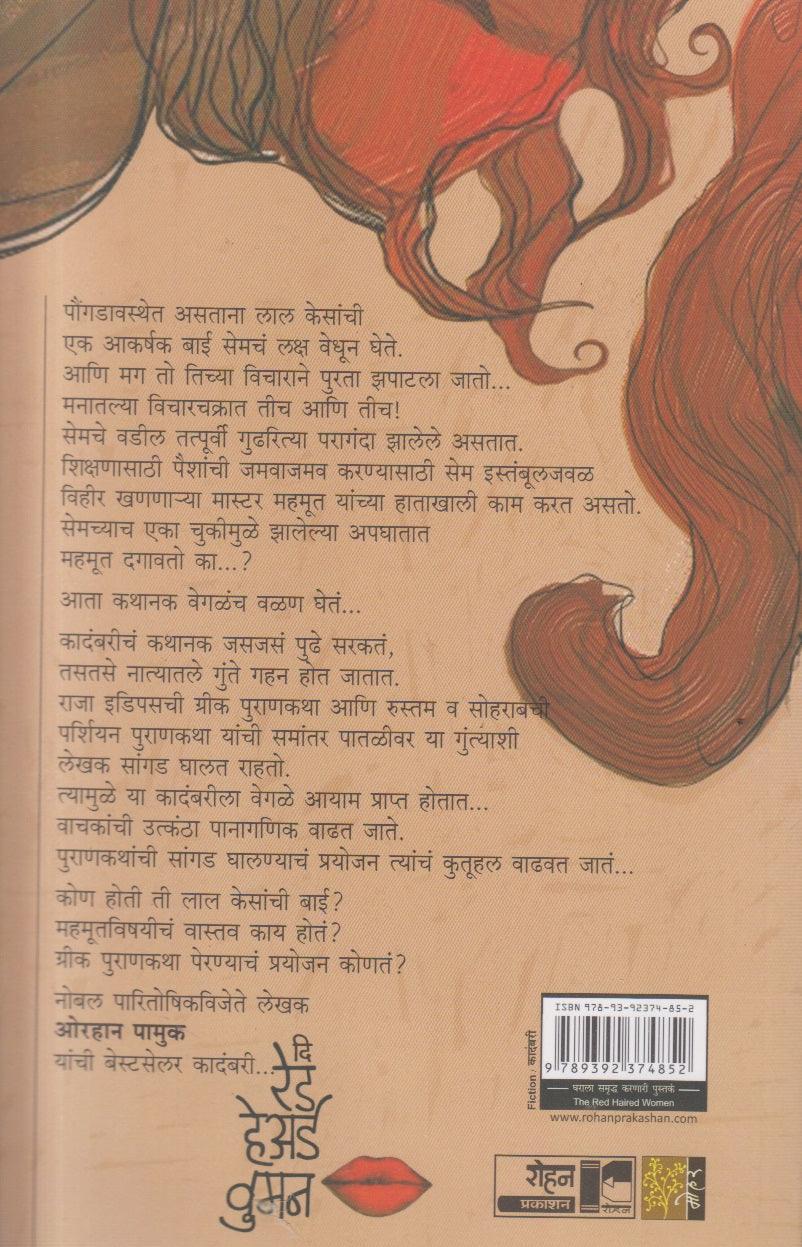 पौंगडावस्थेत असताना लाल केसांची
एक आकर्षक बाई सेमचं लक्ष वेधून घेते.
आणि मग तो तिच्या विचाराने पुरता झपाटला जातो...
मनातल्या विचारचक्रात तीच आणि तीच!
सेमचे वडील तत्पूर्वी गुढरित्या परागंदा झालेले असतात.
शिक्षणासाठी पैशांची जमवाजमव करण्यासाठी सेम इस्तंबूलजवळ
विहीर खणणाऱ्या मास्टर महमूत यांच्या हाताखाली काम करत असतो.
सेमच्याच एका चुकीमुळे झालेल्या अपघातात
महमूत दगावतो का...?
आता कथानक वेगळंच वळण घेतं...
कादंबरीचं कथानक जसजसं पुढे सरकतं,
तसतसे नात्यातले गुंते गहन होत जातात.
राजा इडिपसची ग्रीक पुराणकथा आणि रुस्तम व सोहराबची
पर्शियन पुराणकथा यांची समांतर पातळीवर या गुंत्याशी
लेखक सांगड घालत राहतो.
त्यामुळे या कादंबरीला वेगळे आयाम प्राप्त होतात...
वाचकांची उत्कंठा पानागणिक वाढत जाते.
पुराणकथांची सांगड घालण्याचं प्रयोजन त्यांचं कुतूहल वाढवत जातं...
कोण होती ती लाल केसांची बाई?
महमूतविषयीचं वास्तव काय होतं?
ग्रीक पुराणकथा पेरण्याचं प्रयोजन कोणतं?
नोबल पारितोषिकविजेते लेखक
ओरहान पामुक
यांची बेस्टसेलर कादंबरी...
दि
रेड
हेअर्ड
वुमन
Fiction / कादंबरी
ISBN 978-93-92374-85-2
9 789392 374852
घराला समृद्ध करणारी पुस्तकं
The Red Haired Women
www.rohanprakashan.com
रोहन
प्रकाशन
रोहन
मोहर